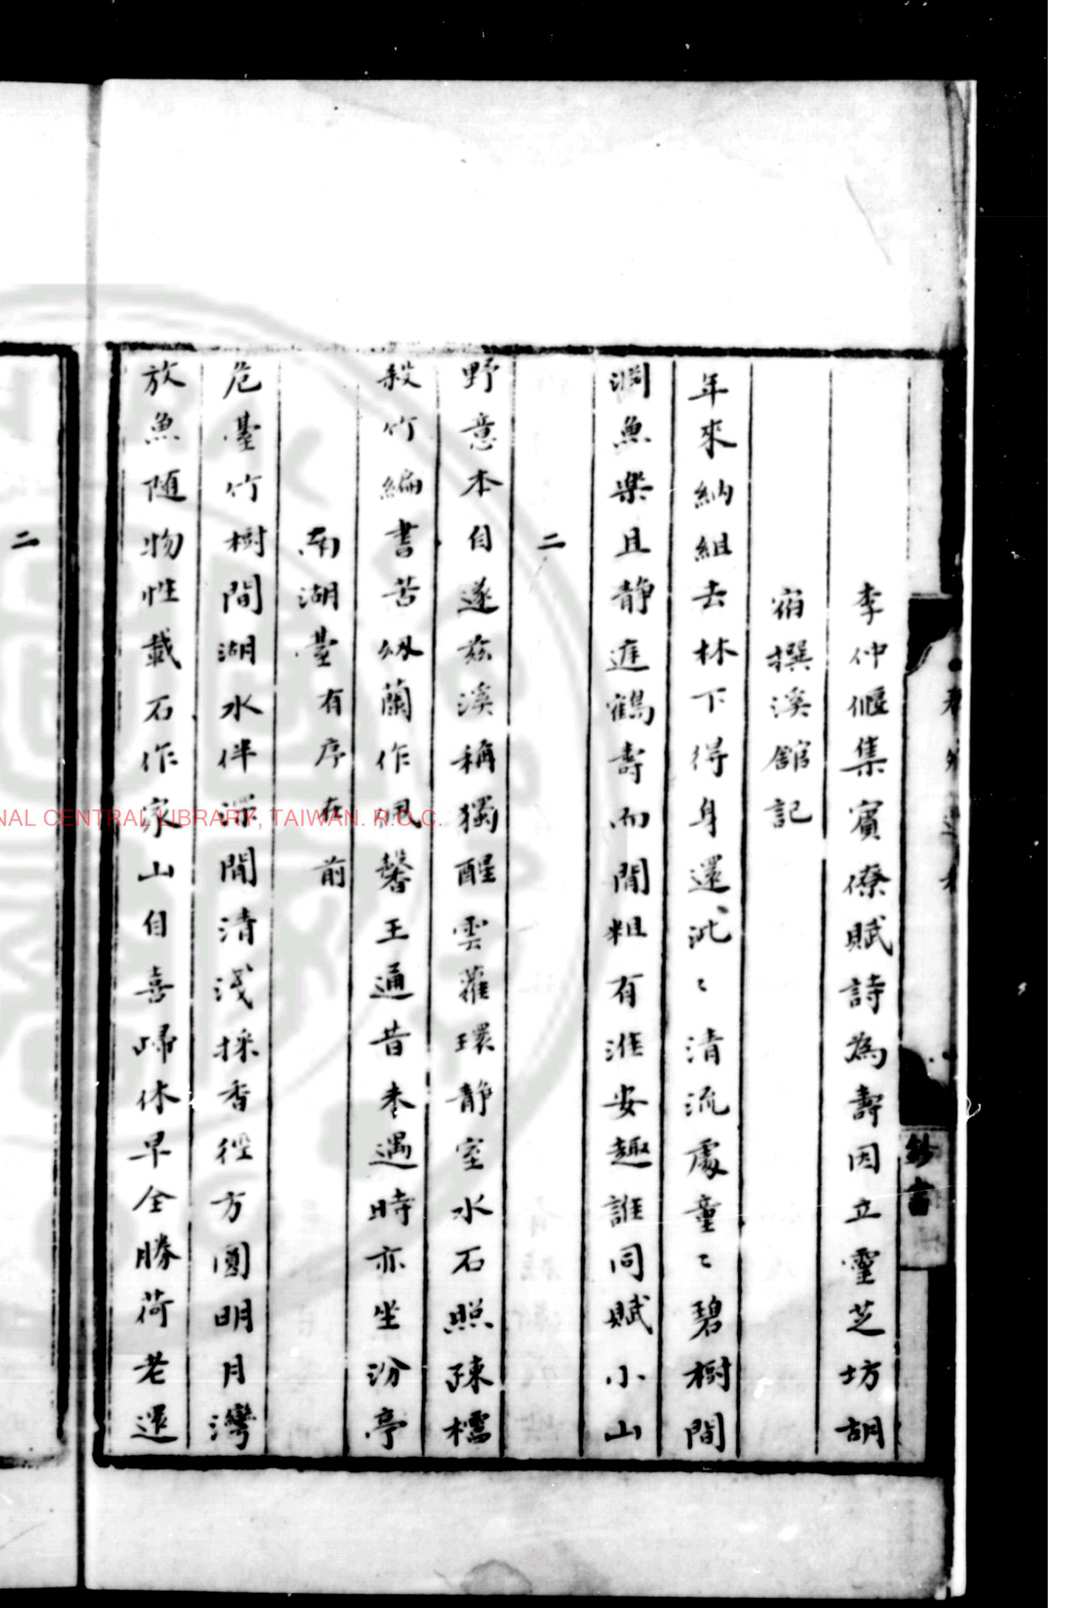 李仲偃集賓僚賦詩為壽因立靈芝坊胡
宿撰溪舘記
年來納組去林下得身還沘〻清流處童〻碧樹間
澗魚樂且靜進鶴壽而閒粗有淮安趣誰同賦小山
二
野意本自遂茲溪稱獨醒雲蘿環靜室水石照疎櫺
殺竹編書苦紉蘭作佩馨王通昔未遇時亦坐汾亭
南湖臺有序在前
危臺竹樹間湖水伴深閒清淺採香徑方圓明月灣
放魚隨物性載石作家山自喜歸休早全勝荷老還
二
鈔書
NAL CENTRAL LIBRARY, TAIWAN. R.O.C.